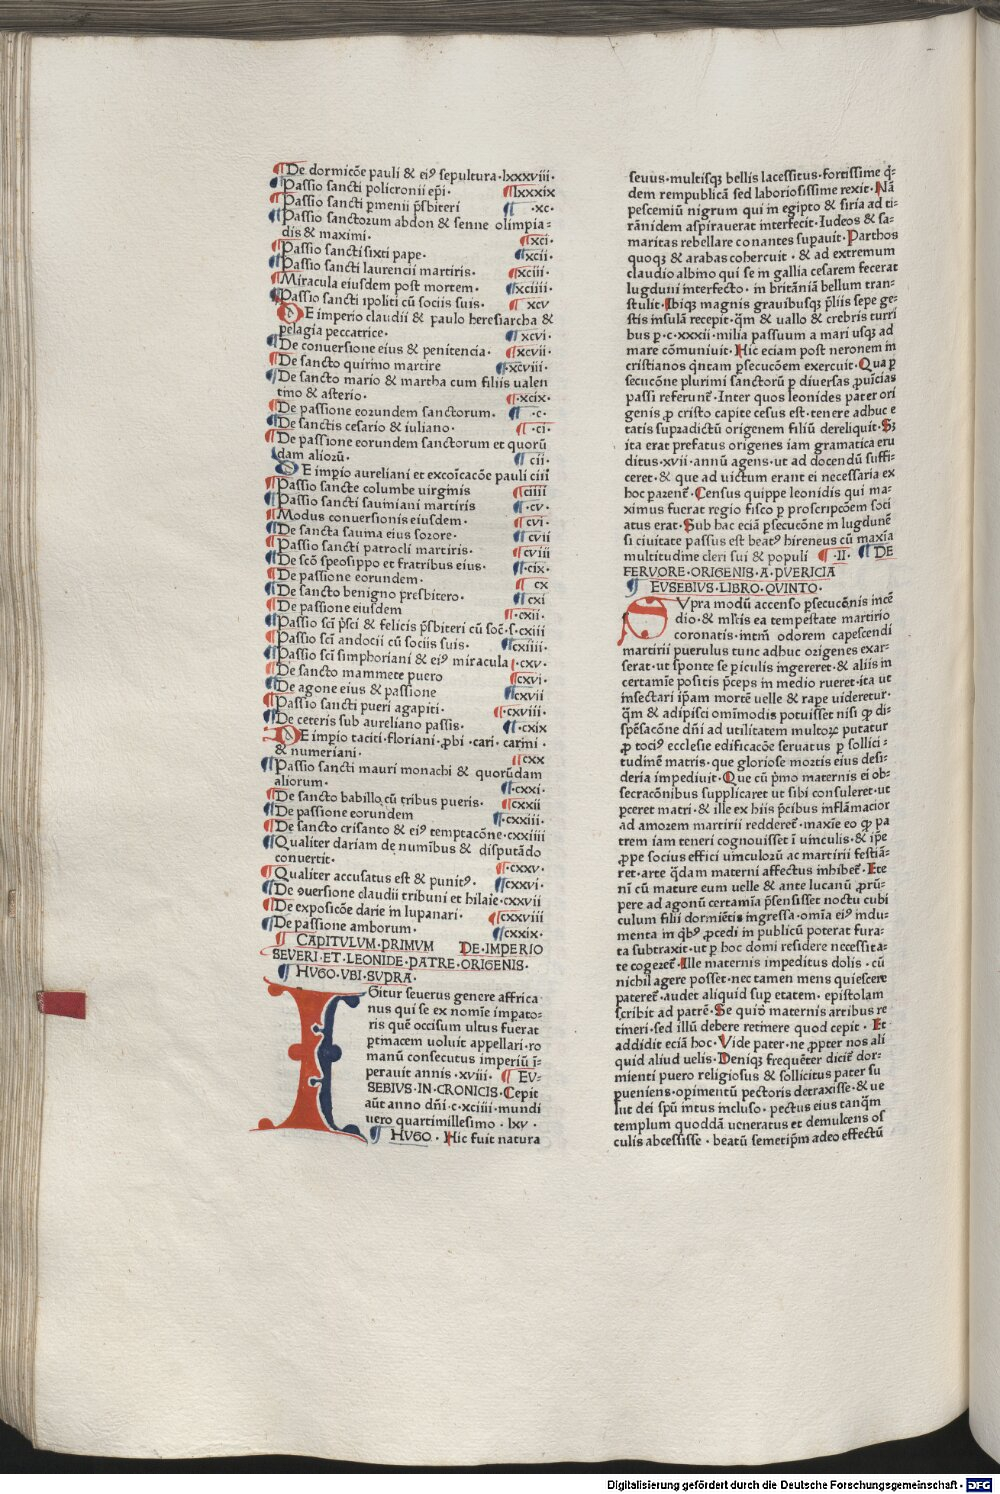 De dormicōe pauli & eiꝰ sepultura·lxxxviii·
Passio sancti policronii ep̄i· lxxxix
Passio sancti ꝑmenii p̄sbiteri ·xc·
Passio sanctoꝛum abdon & senne olimpia-
dis & maximi· xci·
Passio sancti sixti pape· xcii·
Passio sancti laurencii martiris· xciii·
Miracula eiusdem post mortem· xciiii·
Passio sancti ipoliti cū sociis suis· xcv
DE imperio claudii & paulo heresiarcha &
pelagia peccatrice· xcvi·
De conuersione eius & penitencia· xcvii·
De sancto quirino martire ·xcviii·
De sancto mario & martha cum filiis ualen
tino & asterio· ·xcix·
De passione eoꝛundem sanctorum· ·c·
De sanctis cesario & iuliano· ·ci·
De passione eorundem sanctorum et quorū
dam alioꝛū· cii·
DE imp̄io aureliani et excoīcacōe pauli ciii
Passio sancte columbe uirginis ciiii
Passio sancti sauiniani martiris ·cv·
Modus conuersionis eiusdem· cvi·
De sancta sauina eius soꝛore· cvii
Passio sancti patrocli martiris· cviii
De scō speosippo et fratribus eius· ·cix·
De passione eorundem· cx
De sancto benigno presbitero· cxi
De passione eiusdem ·cxii·
Passio sci p̄sci & felicis p̄sbiteri cū soc̄·s·cxiii
Passio sci andocii cū sociis suis· cxiiii·
Passio sci simphoriani & eiꝰ miracula ·cxv·
De sancto mammete puero cxvi·
De agone eius & passione cxvii
Passio sancti pueri agapiti· ·cxviii·
De ceteris sub aureliano passis· ·cxix
DE imp̄io taciti·floriani·ꝓbi·cari·carini·
& numeriani· cxx
Passio sancti mauri monachi & quorūdam
aliorum· ·cxxi·
De sancto babillo cū tribus pueris· cxxii
De passione eorundem ·cxxiii·
De sancto crisanto & eiꝰ temptacōne·cxxiiii
Qualiter dariam de numībus & disputādo
conuertit· ·cxxv·
Qualiter accusatus est & punitꝰ· cxxvi·
De ꝯuersione claudii tribuni et hilaie·cxxvii
De exposicōe darie in lupanari· cxxviii
De passione amborum· cxxix·
CAPITVLVM·PRIMVM DE·IMPERIO
SEVERI·ET·LEONIDE·PATRE·ORIGENIS·
HVGO·VBI·SVPRA·
IGitur seuerus genere affrica
nus qui se ex nomīe impato-
ris quē occisum ultus fuerat
ꝑtinacem uoluit appellari·ro
manū consecutus imperiū ī-
perauit annis·xviii· EV-
SEBIVS·IN·CRONICIS·Cepit
aūt anno dn̄i·c·xciiii·mundi
uero quartimillesimo·lxv·
HVGO·Hic fuit natura
seuus·multisqꝫ bellis lacessitus·fortissime q̄-
dem rempublicā sed laboriosissime rexit·Nā
pesceniū nigrum qui in egipto & siria ad ti-
rānidem aspirauerat interfecit·Iudeos & sa-
maritas rebellare conantes suꝑauit·Parthos
quoqꝫ & arabas cohercuit·& ad extremum
claudio albino qui se in gallia cesarem fecerat
lugduni interfecto·in britāniā bellum tran-
stulit·Ibiqꝫ magnis grauibusqꝫ p̄liis sepe ge-
stis insulā recepit·q̄m & uallo & crebris turri
bus ꝑ·c·xxxii·milia passuum a mari usqꝫ ad
mare cōmuniuit·Hic eciam post neronem in
cristianos q̄ntam ꝑsecucōem exercuit·Qua ꝑ
secucōne plurimi sanctorū ꝑ diuersas ꝓuīcias
passi referunt̄·Inter quos leonides pater ori
genis ꝓ cristo capite cesus est·tenere adhuc e
tatis supꝛadictū origenem filiū dereliquit·Sꝫ
ita erat prefatus origenes iam gramatica eru
ditus·xvii·annū agens·ut ad docendū suffi-
ceret·& que ad uictum erant ei necessaria ex
hoc paꝛent̄·Census quippe leonidis qui ma-
ximus fuerat regio fisco ꝑ proscripcōem soci
atus erat·Sub hac eciā ꝑsecucōne in lugdunē
si ciuitate passus est beatꝰ hireneus cū maxīa
multitudine cleri sui & populi ·II· DE
FERVORE·ORIGENIS·A·PVERICIA
EVSEBIVS·LIBRO·QVINTO·
SVpra modū accenso ꝑsecucōnis incē
dio·& ml̄tis ea tempestate martirio
coronatis·intm̄ odorem capescendi
martirii puerulus tunc adhuc origenes exar-
serat·ut sponte se ꝑiculis ingereret·& aliis in
certamīe positis p̄ceps in medio rueret·ita ut
insectari ip̄am mortē uelle & raꝑe uideretur·
q̄m & adipisci omīmodis potuisset nisi ꝙ di-
spēsacōne dn̄i ad utilitatem multoꝝ putatur
ꝓ tociꝰ ecclesie edificacōe seruatus ꝑ sollici-
tudinē matris·que gloriose mortis eius desi-
deria impediuit·Que cū p̄mo maternis ei ob-
secracōnibus supplicaret ut sibi consuleret·ut
ꝑceret matri·& ille ex hiis p̄cibus inflāmacior
ad amoꝛem martirii redderet̄·maxīe eo ꝙ pa
trem iam teneri cognouisset ī uinculis·& ip̄e
ꝓpe socius effici uinculoꝛū ac martirii festiā-
ret·arte q̄dam materni affectus inhibet̄·Ete
nī cū mature eum uelle & ante lucanū ꝓrū-
pere ad agonū certamīa p̄sensisset noctu cubi
culum filii dormiētis ingressa·omīa eiꝰ indu-
menta in q̄bꝰ ꝓcedi in publicū poterat fura-
ta subtraxit·ut ꝑ hoc domi residere necessita-
te cogeꝛet̄·Ille maternis impeditus dolis·cū
nichil agere posset·nec tamen mens quiescere
pateret̄·audet aliquid suꝑ etatem·epistolam
scribit ad patrē·Se quid maternis artibus re
tineri·sed illū debere retinere quod cepit·Et
addidit eciā hoc·Vide pater·ne ꝓpter nos ali
quid aliud uelis·Deniqꝫ frequēter dicit̄ dor-
mienti puero religiosus & sollicitus pater su
pueniens·opimentū pectoris detraxisse·& ue
lut dei spū intus incluso·pectus eius tanq̄m
templum quoddā ueneratus et demulcens os
culis abcessisse·beatū semetip̄m adeo effectū
Digitalisierung gefördert durch die Deutsche Forschungsgemeinschaft - DFG